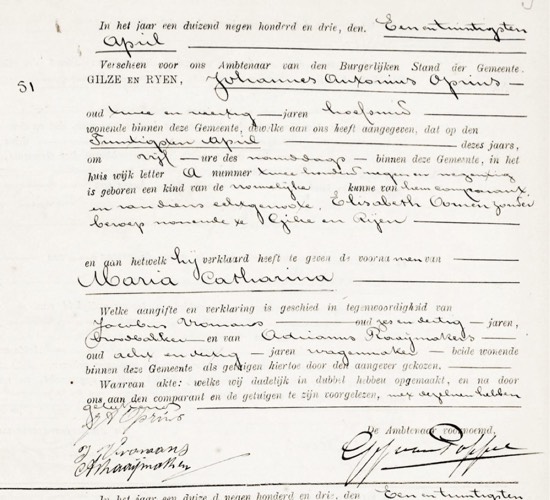 In het jaar een duizend negen honderd en drie, den. Een en twintigsten
April
Verscheen voor ons Ambtenaar van den Burgerlijken Stand der Gemeente.
51
GILZE EN RYEN, Johannes Antonius Oprins
oud twee en veertig jaren hoefsmid
wonende binnen deze Gemeente, dewelke aan ons heeft aangegeven, dat op den
Twintigsten April dezes jaars,
om vijf ure des namiddags binnen deze Gemeente, in het
huis wijk letter A nummer twee honderd negen en negentig
is geboren een kind van de vrouwelijke kunne van hem comparant
en van diens echtgenoote, Elisabeth Oomen zonder
beroep wonende te Gilze en Rijen
en aan hetwelk hij verklaard heeft te geven de voornamen van
Maria Catharina
Welke aangifte en verklaring is geschied in tegenwoordigheid van
Jacobus Vromans oud zes en dertig jaren,
broodbakker en van Adrianus Raaijmakers
oud acht en dertig jaren wagenmaker beide wonende
binnen deze Gemeente als getuigen hiertoe door den aangever gekozen.
Waarvan akte: welke wij dadelijk in dubbel hebben opgemaakt, en na door
ons aan den comparant en de getuigen te zijn voorgelezen, met dezelven hebben
geteekend
J A Oprins
De Ambtenaar voornoemd,
J. Vromans
A Raaijmakers
In het jaar een duizend negen honderd en drie, den Een en twintigsten